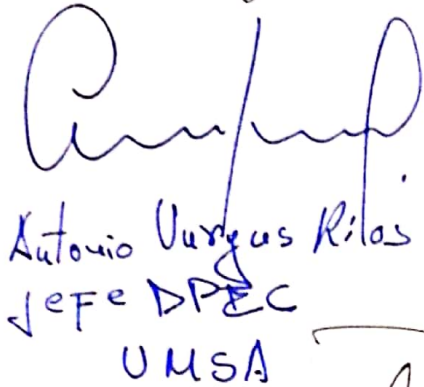 Antonio Vargas Rilos
Jefe DPEC
UMSA